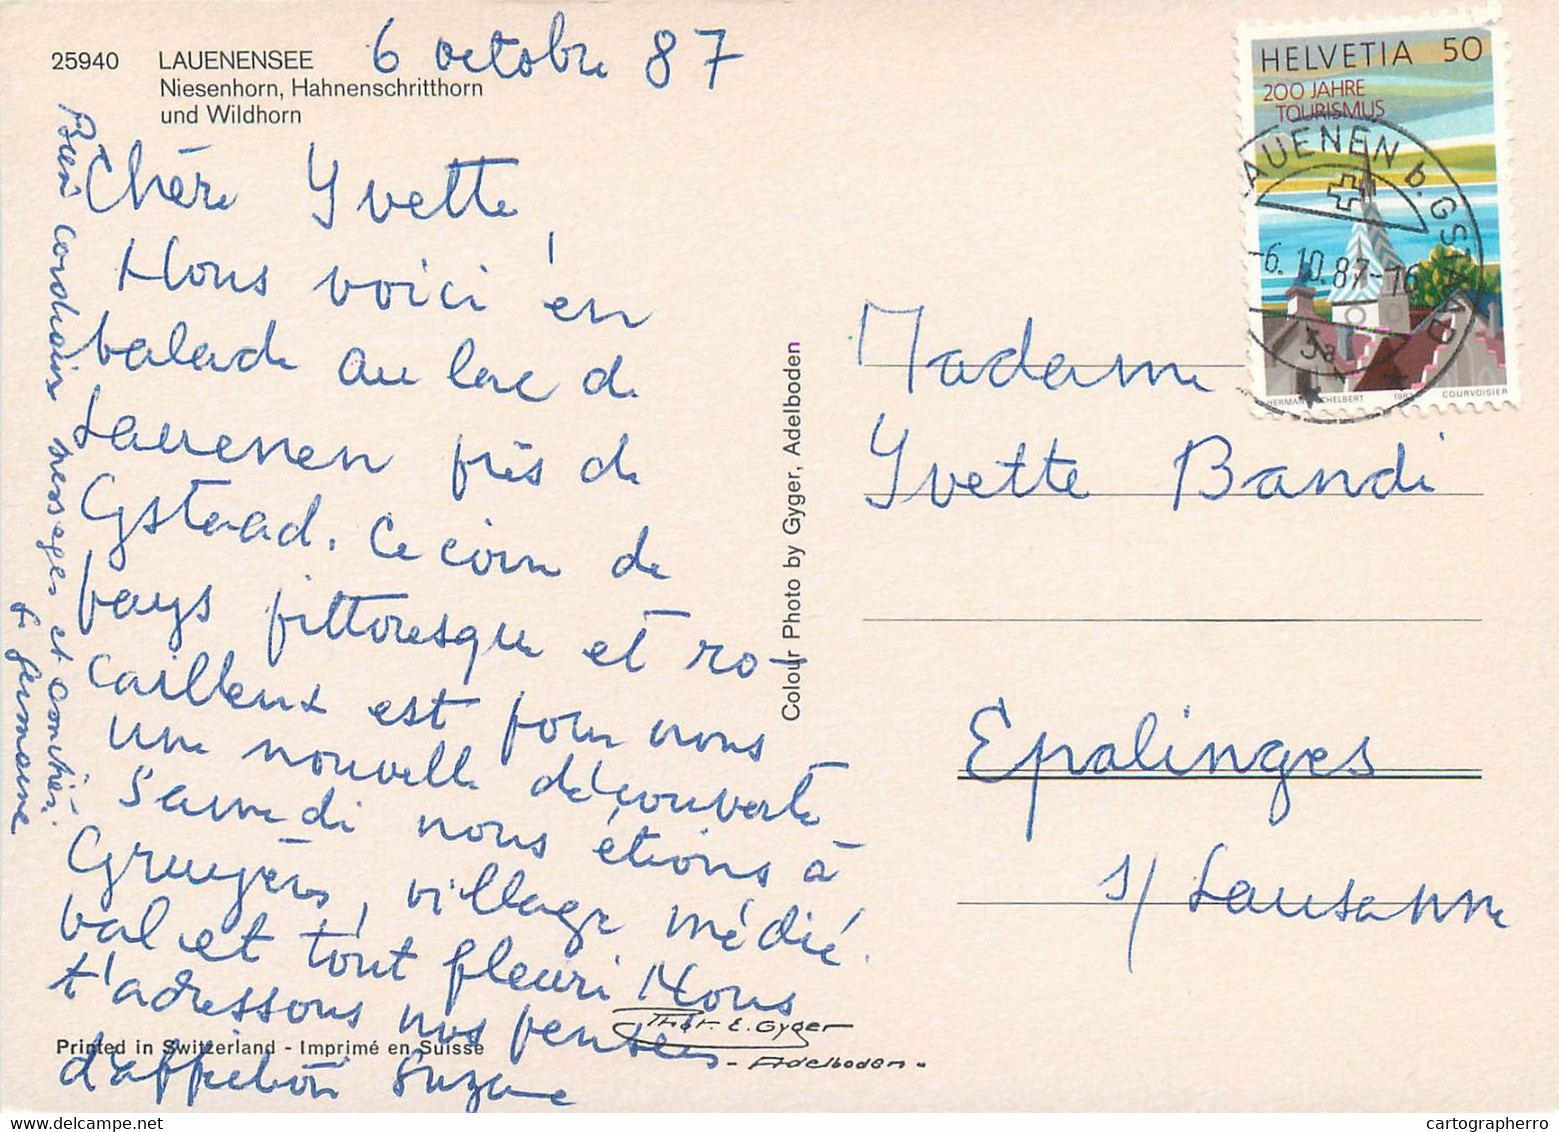 25940 LAUENENSEE
Niesenhorn, Hahnenschritthorn
und Wildhorn
6 octobre 87
Chère Yvette,
Nous voici en
balade au lac de
Lauenen près de
Gstaad. Ce coin de
pays pittoresque et ro-
cailleux est pour nous
une nouvelle découverte
Samedi nous étions à
Gruyères, village médié-
val et tout fleuri Nous
t'adressons nos pensées
d'affection Suzane
Bien cordiaux messages et
de Germaine
Printed in Switzerland - Imprimé en Suisse
Phot. E. Gyger
- Adelboden -
Colour Photo by Gyger, Adelboden
HELVETIA 50
200 JAHRE
TOURISMUS
LAUENEN b. GSTAAD
-6.10.87-16
COURVOISIER
Madame
Yvette Bandi
Epalinges
s/ Lausanne
cartographerro